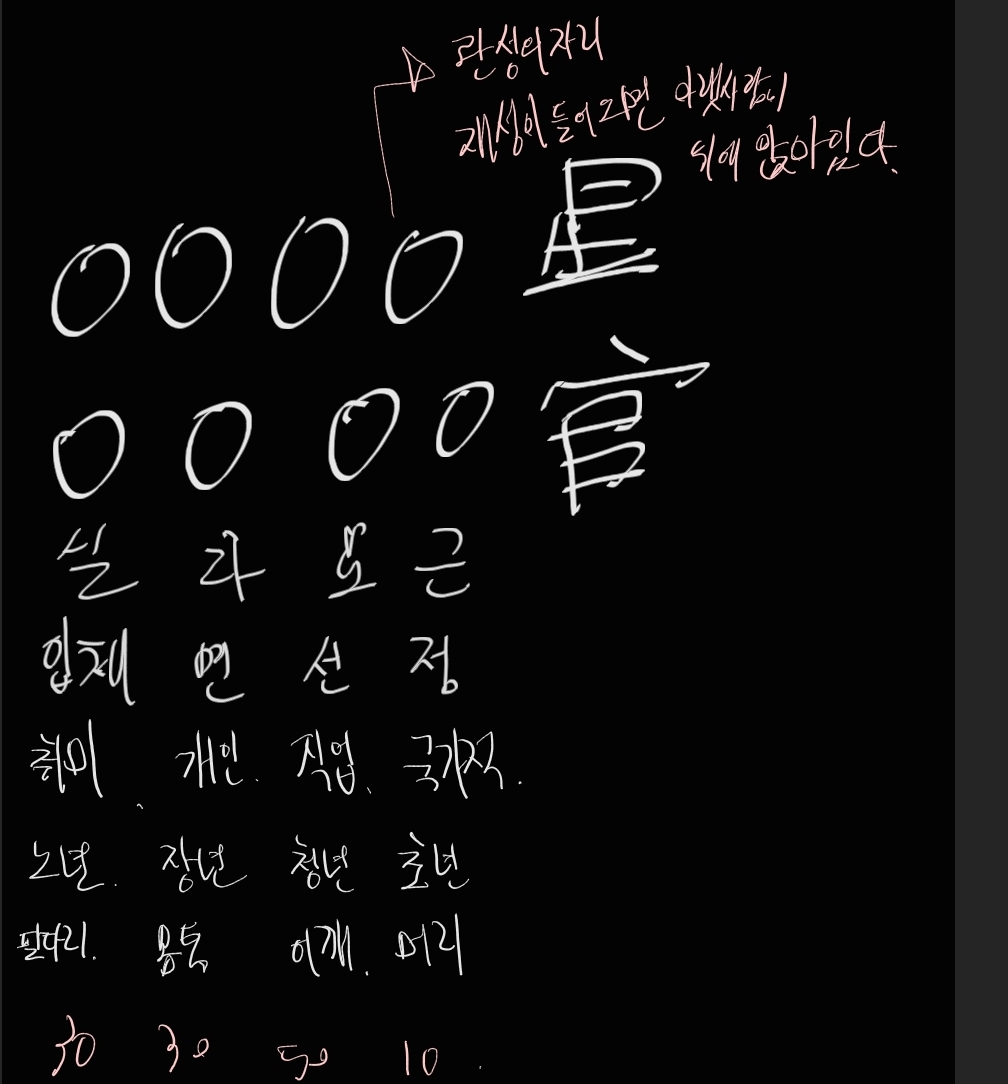 관성의자리
재성이 들어오면 아랫사람이
위에 앉아있다.
0 0 0 0 星
0 0 0 0 官
실 화 묘 근
입체 면 선 점
취미 개인 직업 국가적
노년 장년 청년 초년
팔다리 몸통 어깨 머리
30 30 50 10